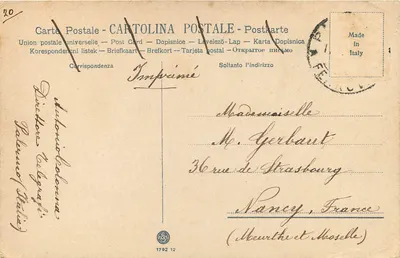 20
Carte Postale - CARTOLINA POSTALE - Postkarte
Union postale universelle - Post Card - Dopisnice - Levelező-Lap - Karta Dopisnica
Korespondenční lístek - Briefkaart - Brefkort - Tarjeta postal - Открытое письмо
Corrispondenza
Soltanto l'indirizzo
Imprimé
Made in Italy
Antonio Colonna
Direttore Telegrafi
Palermo (Italia)
Mademoiselle
M. Gerbaut
36 rue de Strasbourg
Nancy, France
(Meurthe et Moselle)
1792 12